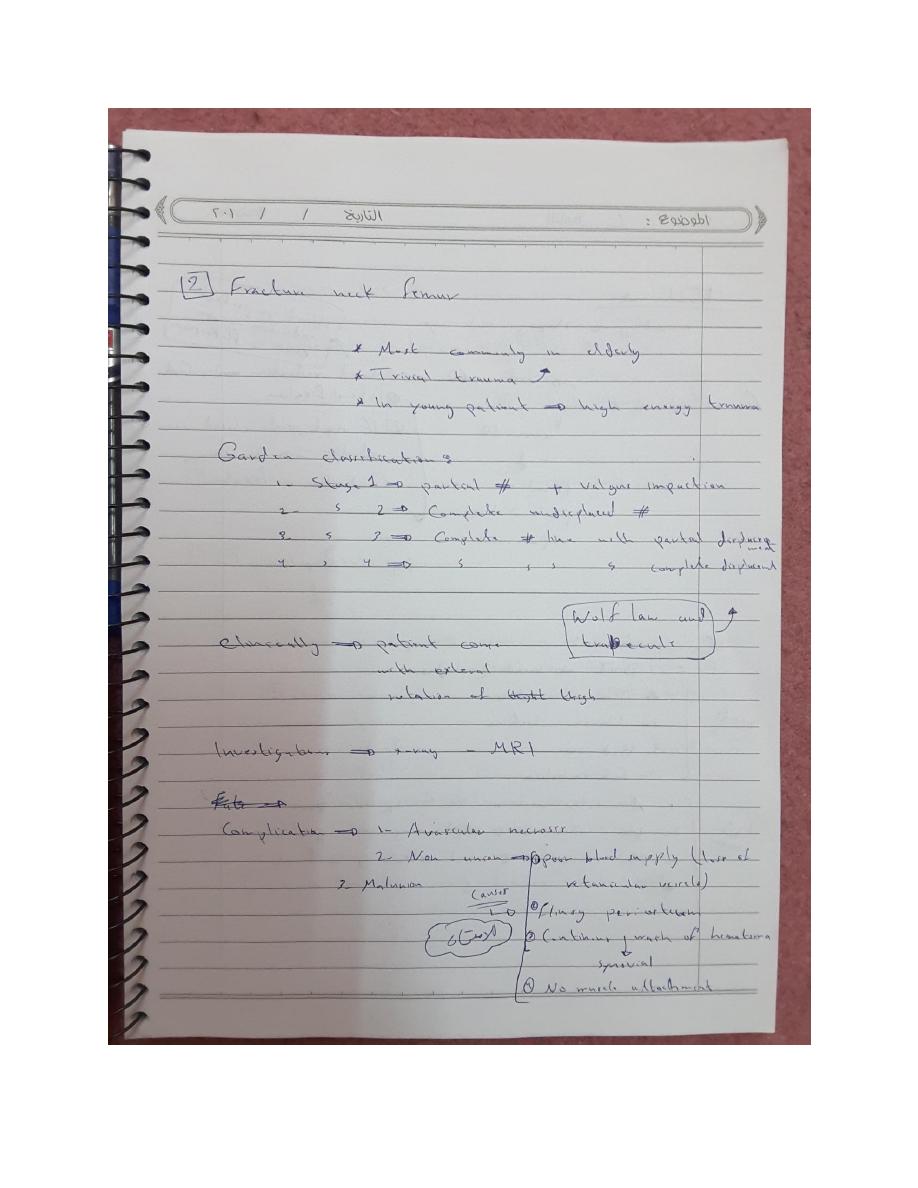 الموضوع : التاريخ / / ٢٠١
2 Fracture neck femur
* Most commonly in elderly
* Trivial trauma
* In young patient ⇒ high energy trauma
Garden classification :
1- Stage 1 ⇒ partial # + valgus impaction
2- s 2 ⇒ Complete undisplaced #
3- s 3 ⇒ Complete # line with partial displacement
4- , 4 ⇒ s , s s complete displacment
Wolf law and
trabecule
Clinically ⇒ patient come
with external
rotation of thigh
Investigations ⇒ x-ray - MRI
Fate ⇒
Complication ⇒ 1- Avascular necrosis
2- Non-union ⇒ ① poor blood supply (loss of
retanicular vessels)
3- Malunion
Causes
② flimsy periosteum
③ Continous wash of hematoma
synovial
④ No muscle attachment